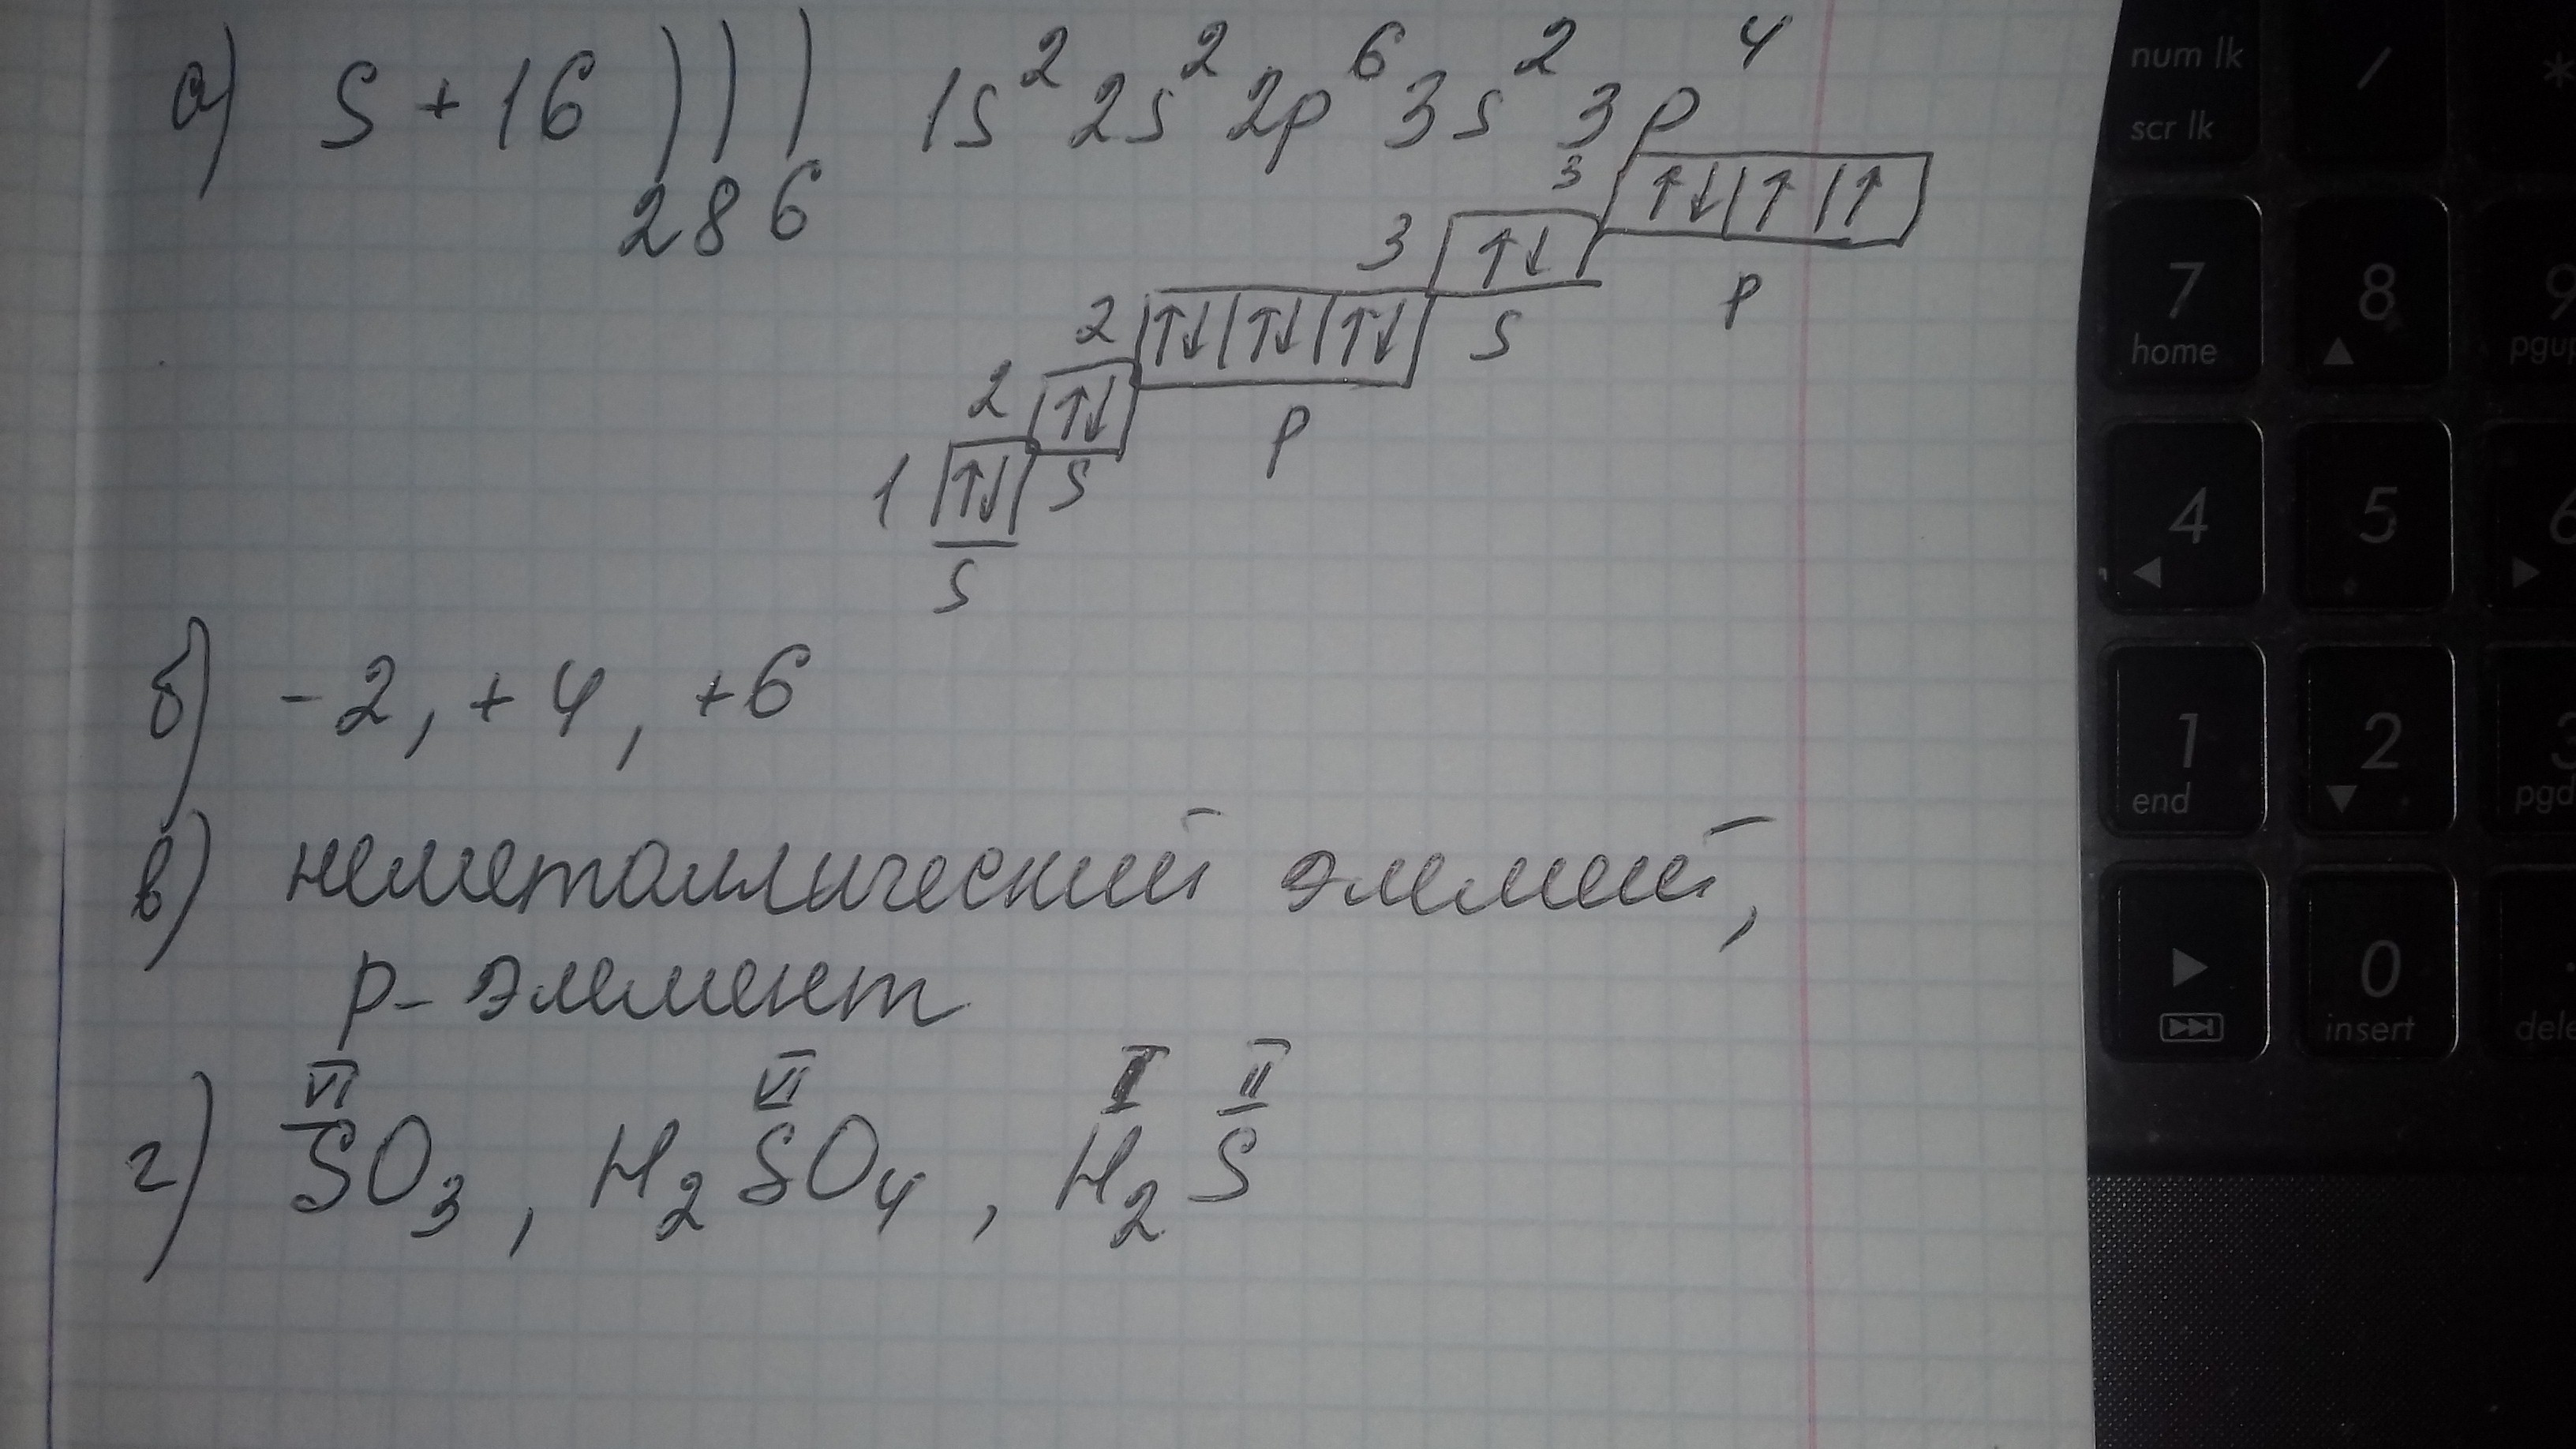 а) S + 16 ) ) ) 1s² 2s² 2p⁶ 3s² 3p⁴
2 8 6
3 ↑↓ ↑ ↑
3 ↑↓ p
2 ↑↓ ↑↓ ↑↓ s
2 ↑↓ p
1 ↑↓ s
s
б) -2, +4, +6
в) неметаллический элемент,
р- элемент
г) SO₃, H₂SO₄, H₂S
VI VI I II
num lk
scr lk
/
*
7
home
8
9
pgup
4
5
6
1
end
2
3
pgd
0
insert
dele